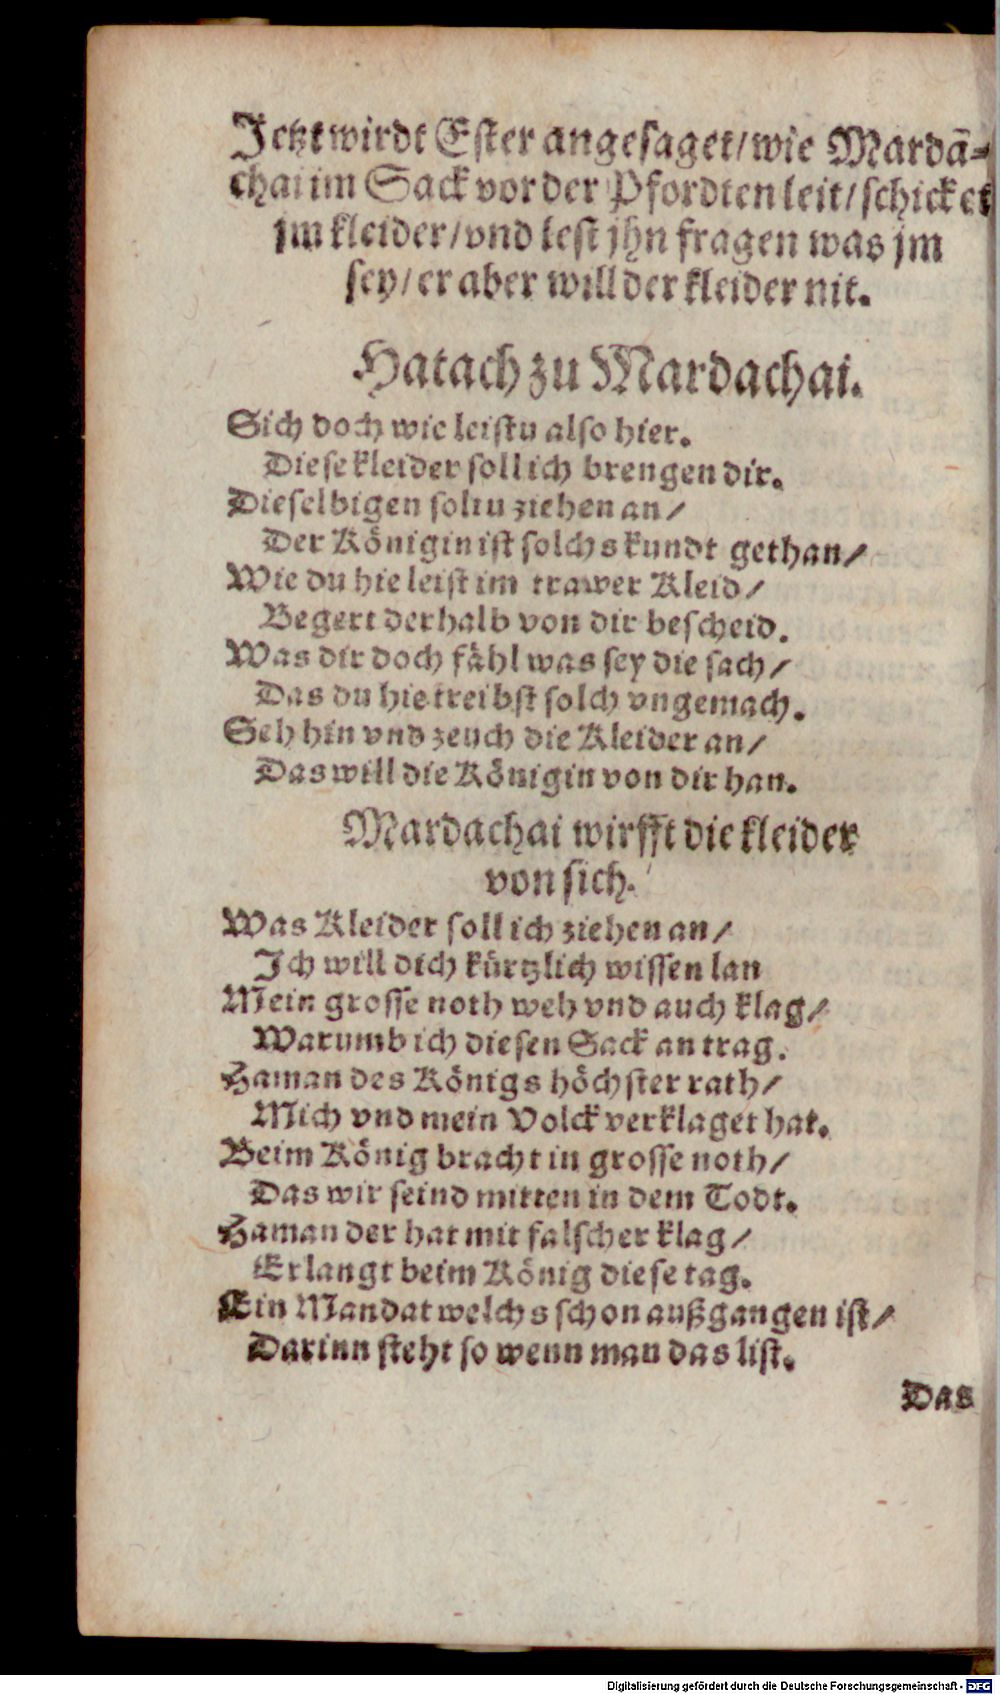 Jetzt wirdt Ester angesaget/ wie Mardā-
chai im Sack vor der Pfordten leit/ schicket
jm kleider/ vnd lest jhn fragen was jm
sey/ er aber will der kleider nit.
Hatach zu Mardachai.
Sich doch wie leistu also hier.
Diese kleider soll ich brengen dir.
Dieselbigen soltu ziehen an/
Der Königin ist solchs kundt gethan/
Wie du hie leist im trawer Kleid/
Begert derhalb von dir bescheid.
Was dir doch fähl was sey die sach/
Das du hie treibst solch vngemach.
Seh hin vnd zeuch die Kleider an/
Das will die Königin von dir han.
Mardachai wirfft die kleider
von sich.
Was Kleider soll ich ziehen an/
Ich will dich kürtzlich wissen lan
Mein grosse noth weh vnd auch klag/
Warumb ich diesen Sack an trag.
Haman des Königs höchster rath/
Mich vnd mein Volck verklaget hat.
Beim König bracht in grosse noth/
Das wir seind mitten in dem Todt.
Haman der hat mit falscher klag/
Erlangt beim König diese tag.
Ein Mandat welchs schon außgangen ist/
Darinn steht so wenn man das list.
Das
Digitalisierung gefördert durch die Deutsche Forschungsgemeinschaft - DFG